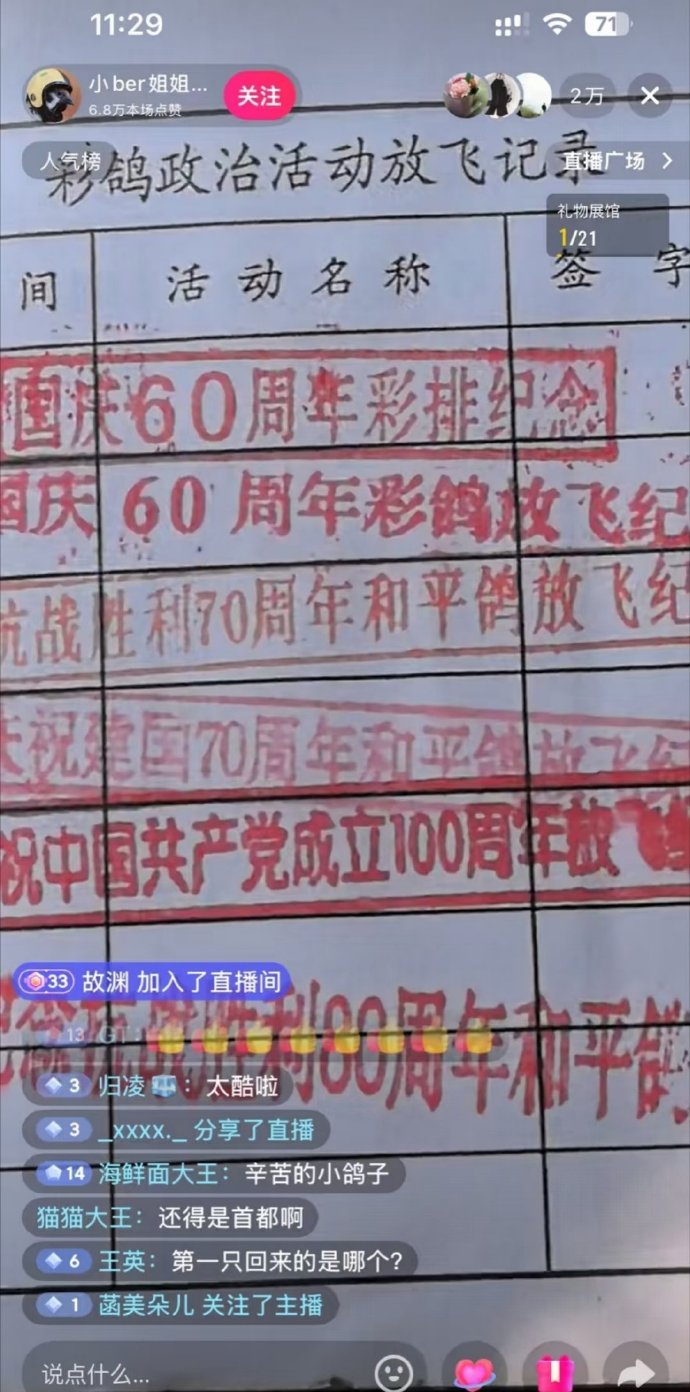 11:29
71
小ber姐姐...
6.8万本场点赞
关注
2万
人气榜
直播广场
彩鸽政治活动放飞记录
礼物展馆
1/21
间 活动名称 签字
国庆60周年彩排纪念
国庆 60 周年彩鸽放飞纪
抗战胜利70周年和平鸽放飞纪
庆祝建国70周年和平鸽放飞纪
祝中国共产党成立100周年放
33 故渊 加入了直播间
胜利80周年和平鸽
13 GT:
3 归凌 : 太酷啦
3 _xxxx._ 分享了直播
14 海鲜面大王: 辛苦的小鸽子
猫猫大王: 还得是首都啊
6 王英: 第一只回来的是哪个?
1 菡美朵儿 关注了主播
说点什么...